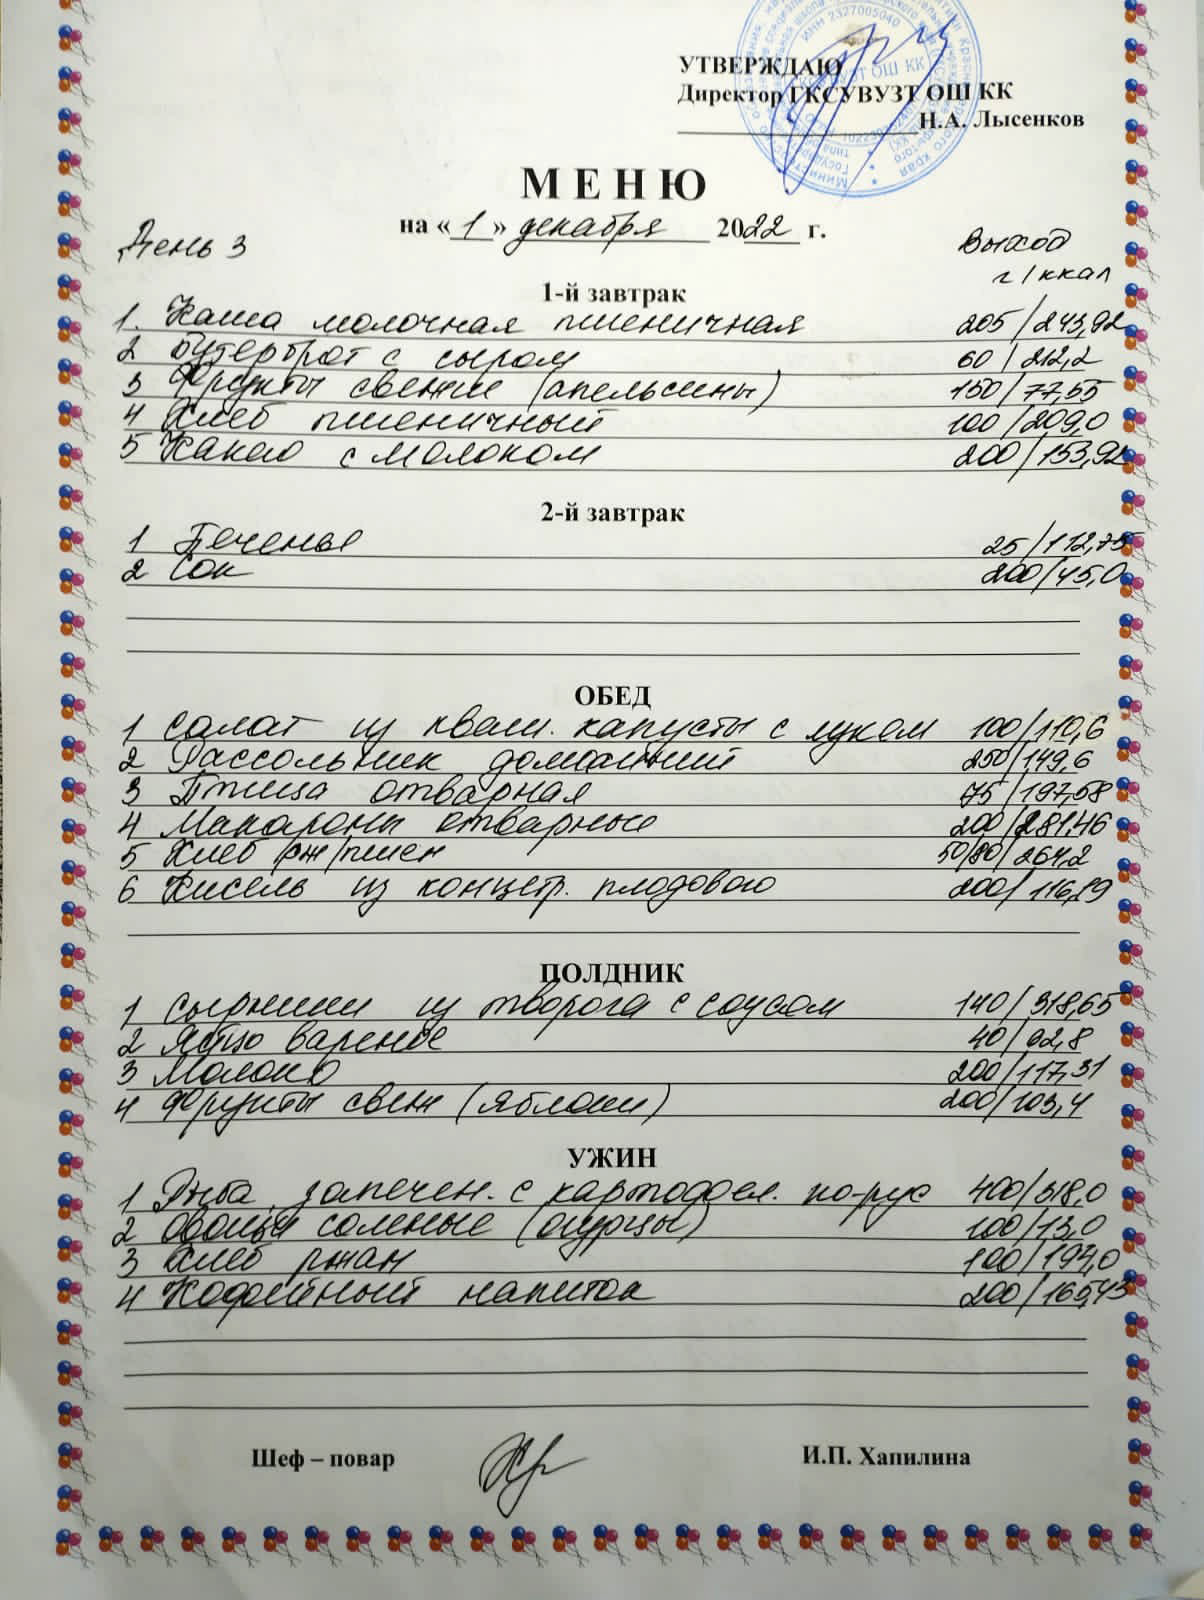 ИНН 2327005040
УТВЕРЖДАЮ
Директор ГКСУВУЗТ ОШ КК
Н.А. Лысенков
МЕНЮ
на «1» декабря 2022 г.
День 3
Выход
г/ккал
1-й завтрак
1. Каша молочная пшеничная 205/243,92
2 Бутерброт с сыром 60/212,2
3 Фрукты свежие (апельсины) 150/77,55
4 Хлеб пшеничный 100/209,0
5 Какао с молоком 200/153,92
2-й завтрак
1 Печенье 25/112,75
2 Сок 200/45,0
ОБЕД
1 Салат из кваш. капусты с луком 100/110,6
2 Рассольник домашний 250/149,6
3 Птица отварная 75/197,58
4 Макароны отварные 200/281,46
5 Хлеб рж/пшен 50/80/264,2
6 Кисель из концетр. плодового 200/116,19
ПОЛДНИК
1 Сырники из творога с соусом 140/318,65
2 Яйцо вареное 40/62,8
3 Молоко 200/117,31
4 Фрукты свеж (яблоки) 200/103,4
УЖИН
1 Рыба запечен. с картофел. по-рус 400/318,0
2 Овощи соленые (огурцы) 100/13,0
3 Хлеб ржан 100/194,0
4 Кофейный напиток 200/165,43
Шеф – повар И.П. Хапилина